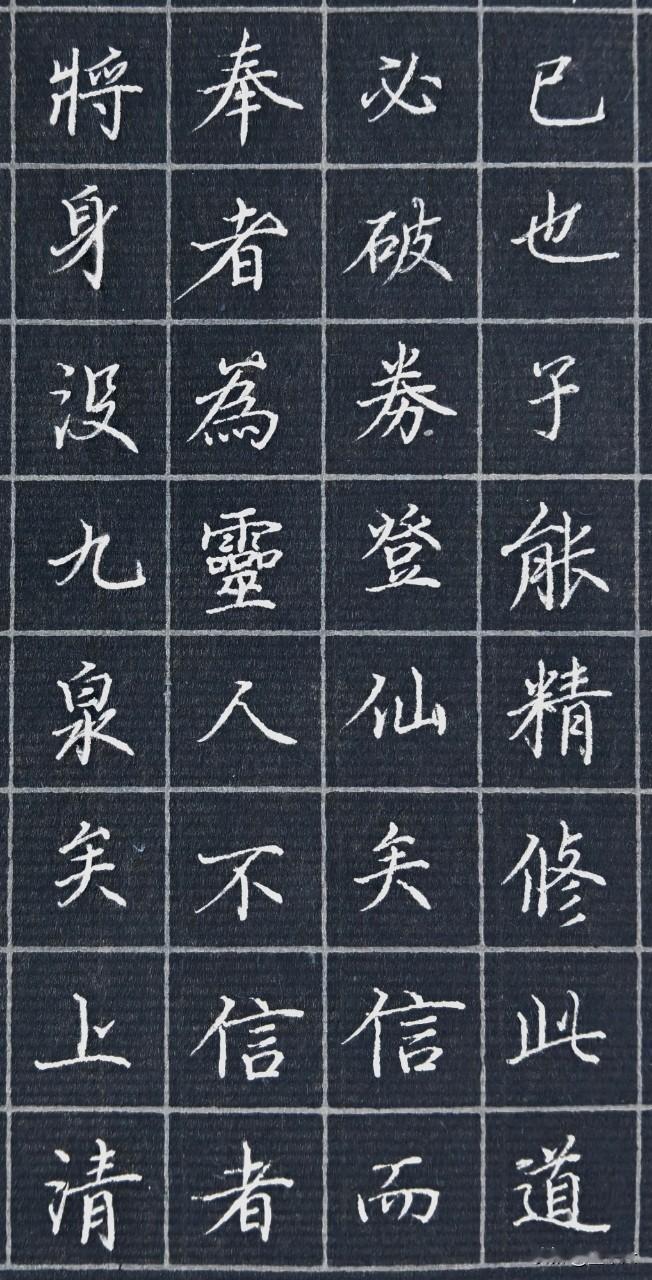 已也子能精修此道
必破券登仙矣信而
奉者為靈人不信者
將身没九泉矣上清